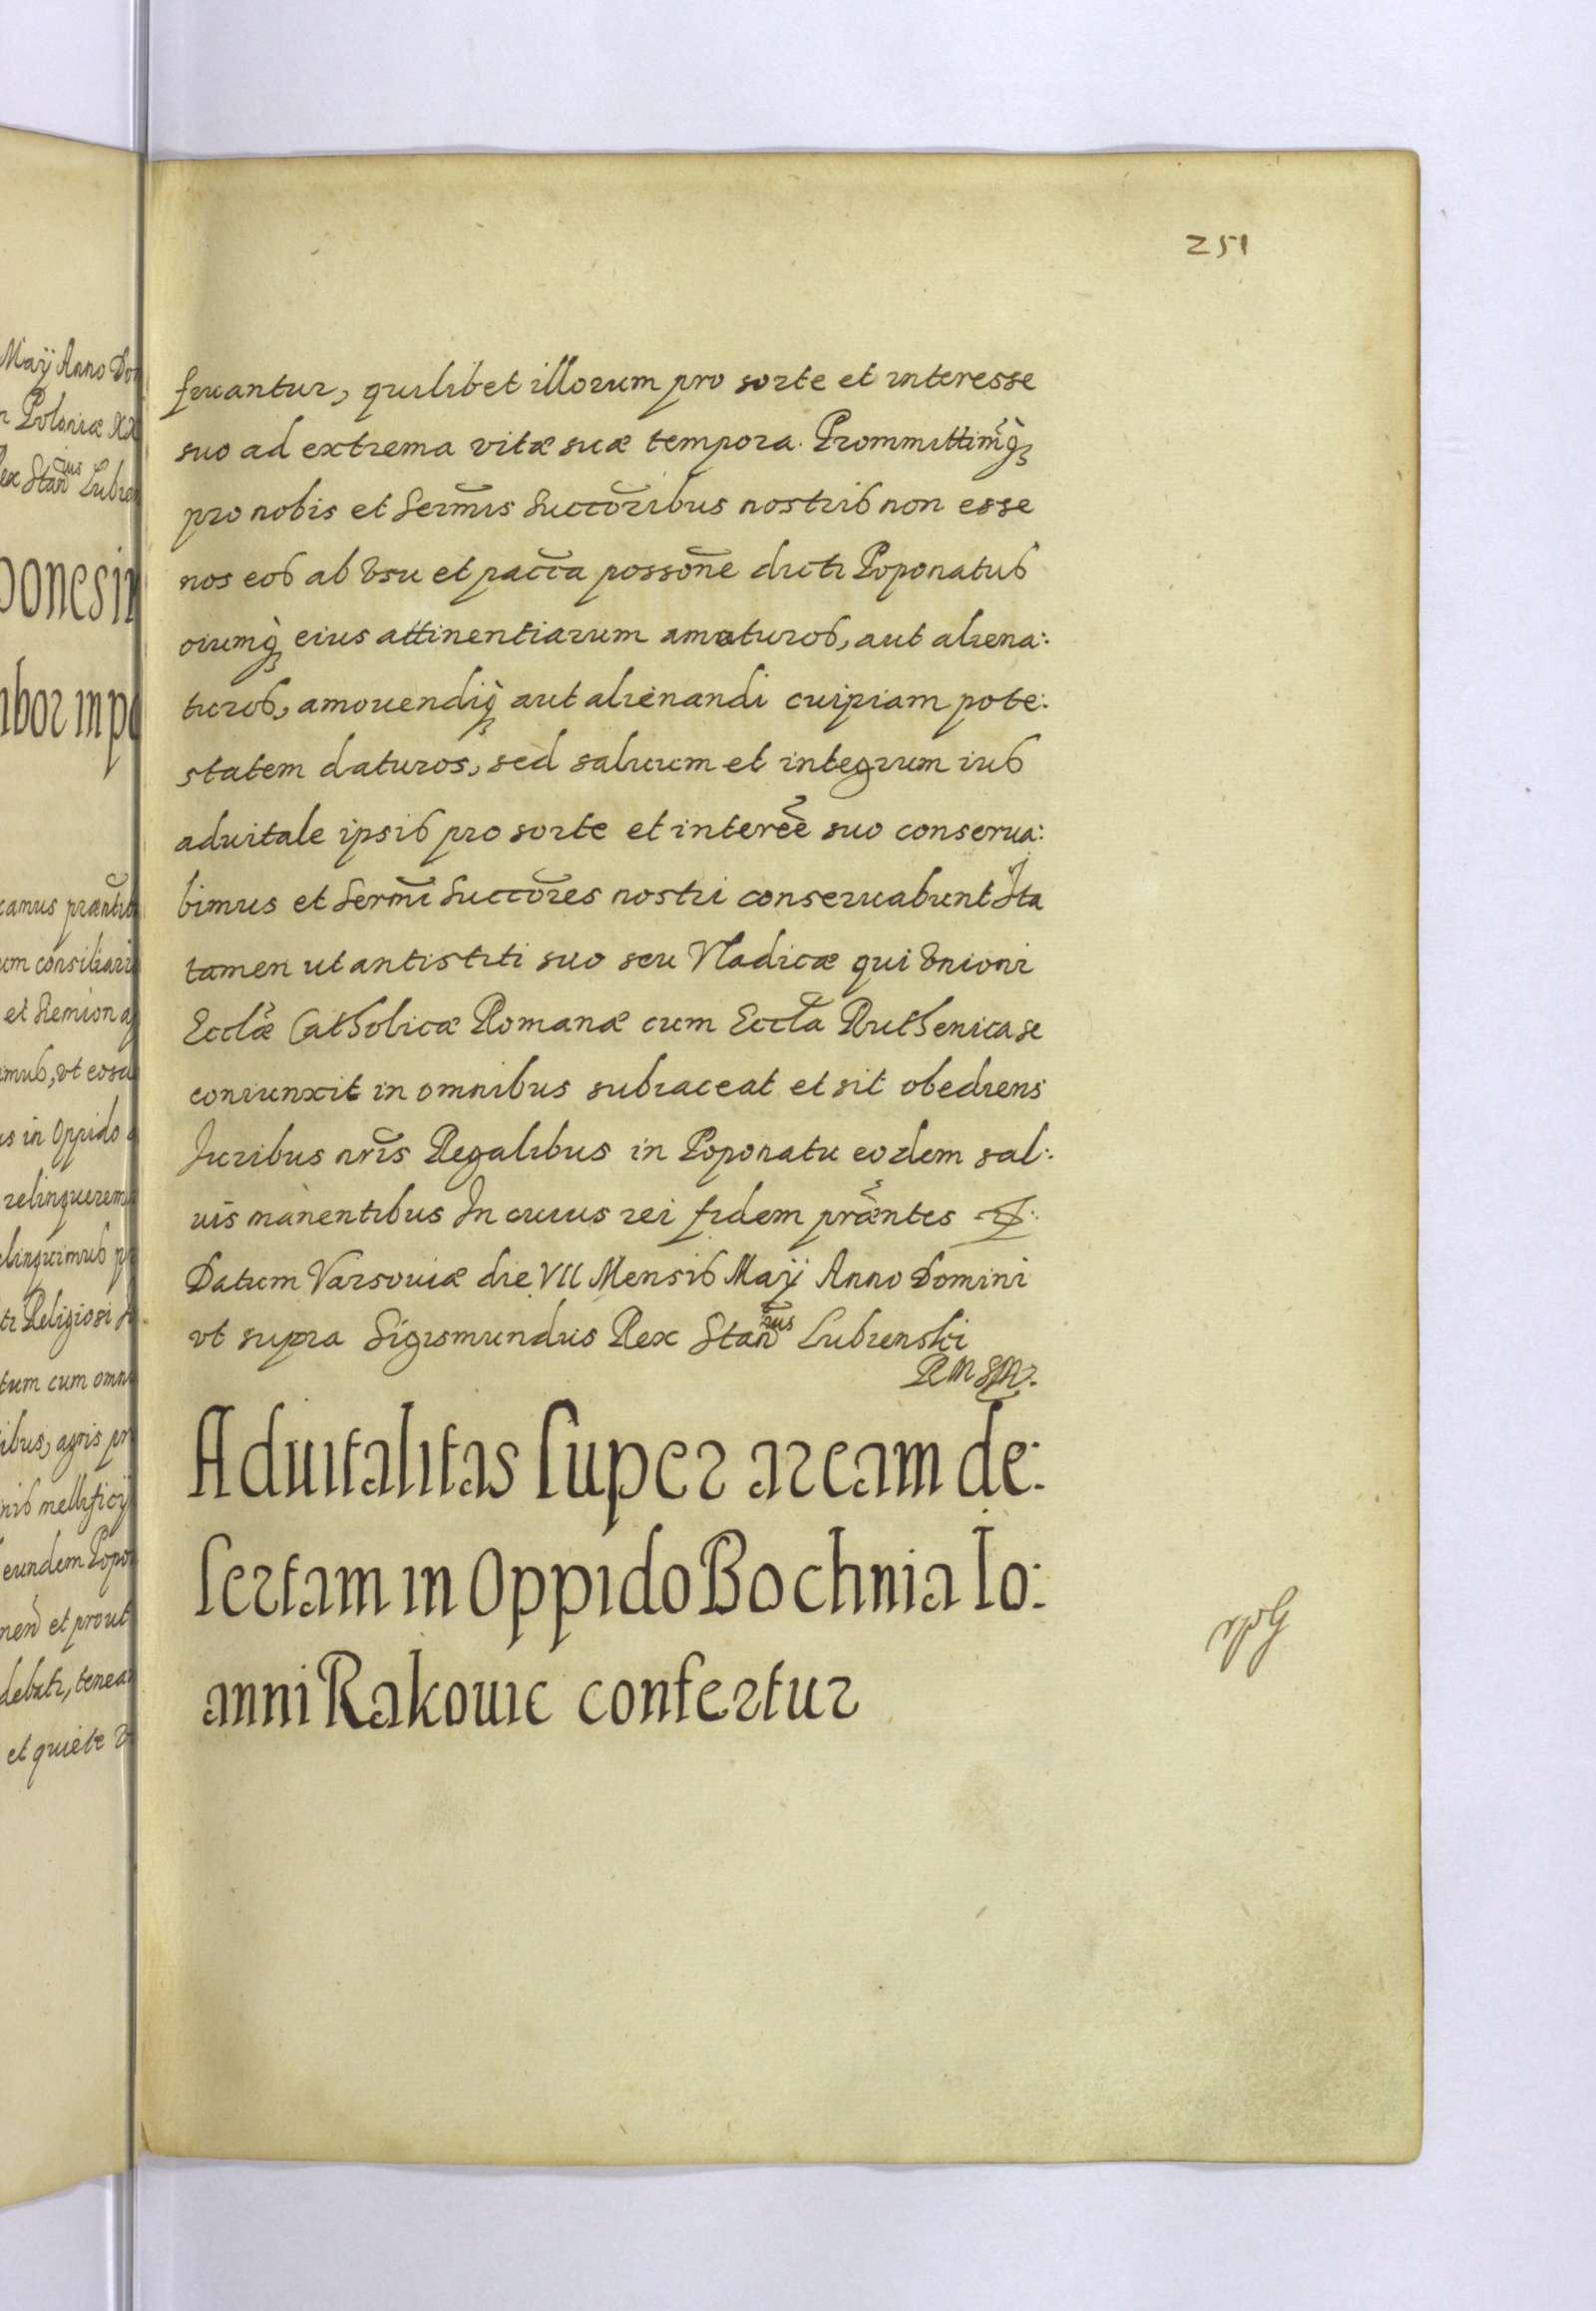 251
fruantur, quilibet illorum pro sorte et interesse
suo ad extrema vitæ suæ tempora. Prommittimq̃
pro nobis et Serm̃is Succõribus nostris non esse
nos eos ab vsu et pac̃ca possõne dicti Poponatus
oiumq̀ eius attinentiarum amoturos, aut aliena:
turos, amouendiq̀ aut alienandi cuipiam pote:
statem daturos, sed saluum et integrum ius
aduitale ipsis pro sorte et interẽe suo conserua:
bimus et Serm̃i Succõres nostri conseruabunt Ita
tamen ut antistiti suo seu Vladicæ qui vnioni
Ecclæ̃ Catholicæ Romanæ cum Eccl̃a Ruthenica se
coniunxit in omnibus subiaceat et sit obediens
Iuribus nr̃is Regalibus in Poponatu eodem sal:
uis manentibus In cuius rei fidem præ̃ntes
Datum Varsouiæ die VII Mensis Maÿ Anno Domini
vt supra Sigismundus Rex Stanius Lubienski
Aduitalitas super aream de:
sertam in Oppido Bochnia Io:
anni Rakouic confertur
May Anno Do
Poloniæ XX
ex Stanius Lubien
ponesin
ibor in po
um consiliari
imus, vt eosd
us in Oppido
relinquerem
elinquimus
ti Religiosi
tum cum omni
ibus, agris pr
nis mellificÿ
eundem Popo
et prout
debati, tenea
et quiete